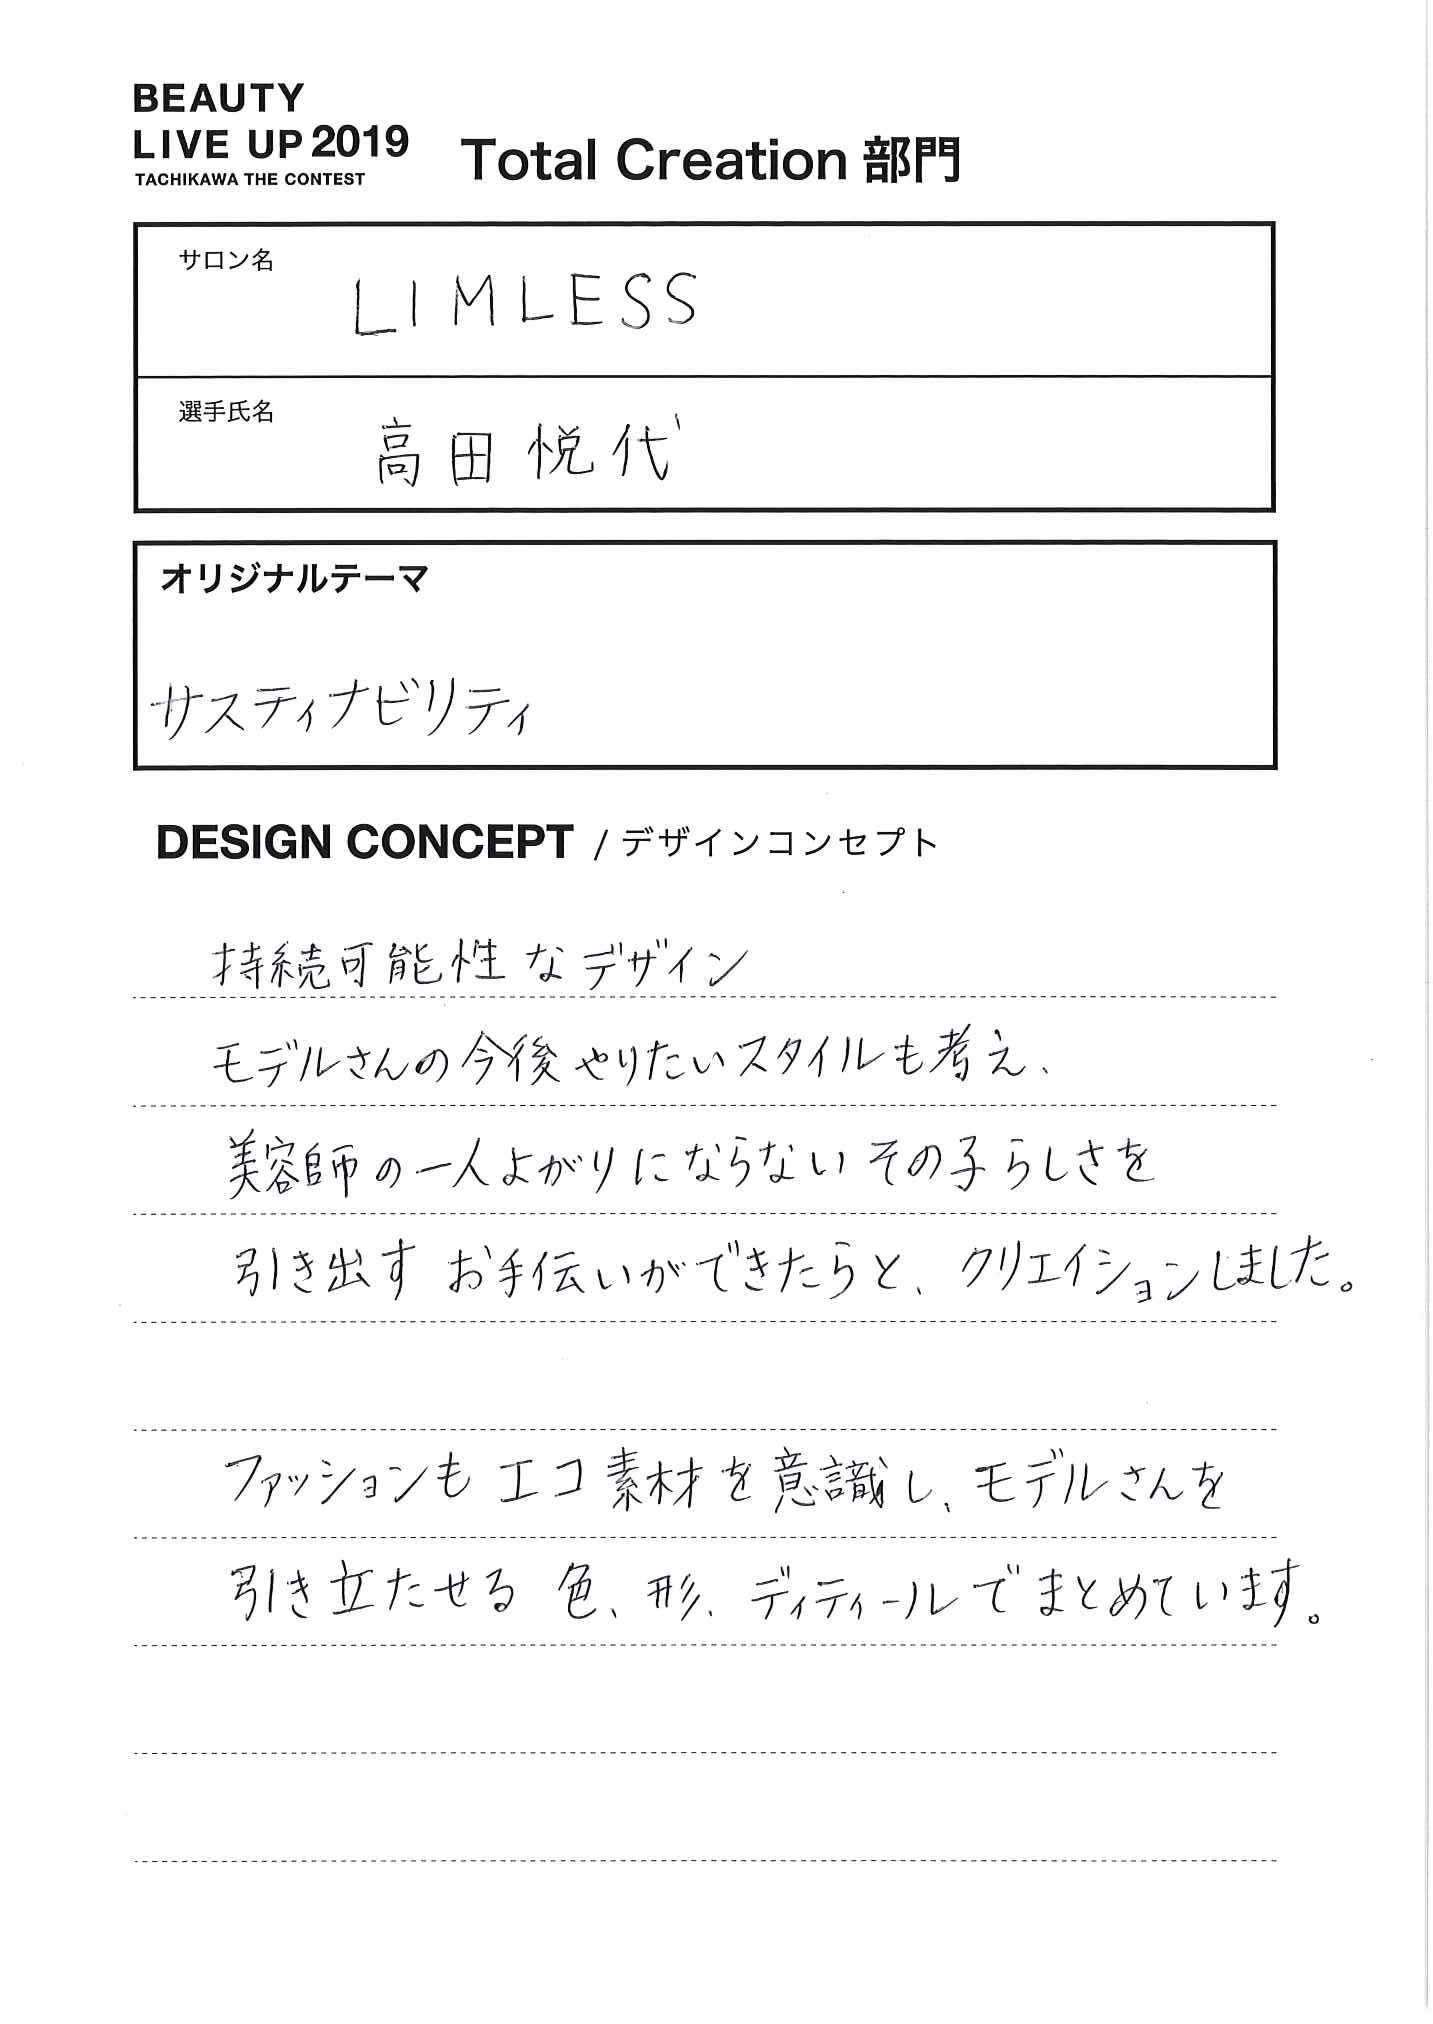 BEAUTY
LIVE UP 2019
TACHIKAWA THE CONTEST
Total Creation 部門
サロン名
LIMLESS
選手氏名
高田 悦代
オリジナルテーマ
サスティナビリティ
DESIGN CONCEPT / デザインコンセプト
持続可能性なデザイン
モデルさんの今後やりたいスタイルも考え、
美容師の一人よがりにならないその子らしさを
引き出す お手伝いができたらと、クリエイションしました。
ファッションも エコ素材を意識し、モデルさんを
引き立たせる 色、形、ディティールでまとめています。